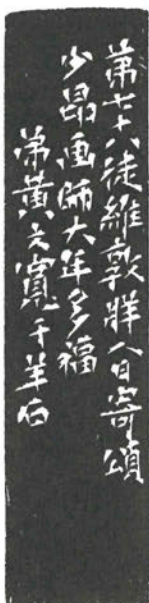 第七十八徒維敦牂人日寄頌
少昂画師大年多福
弟黃文寬于羊石